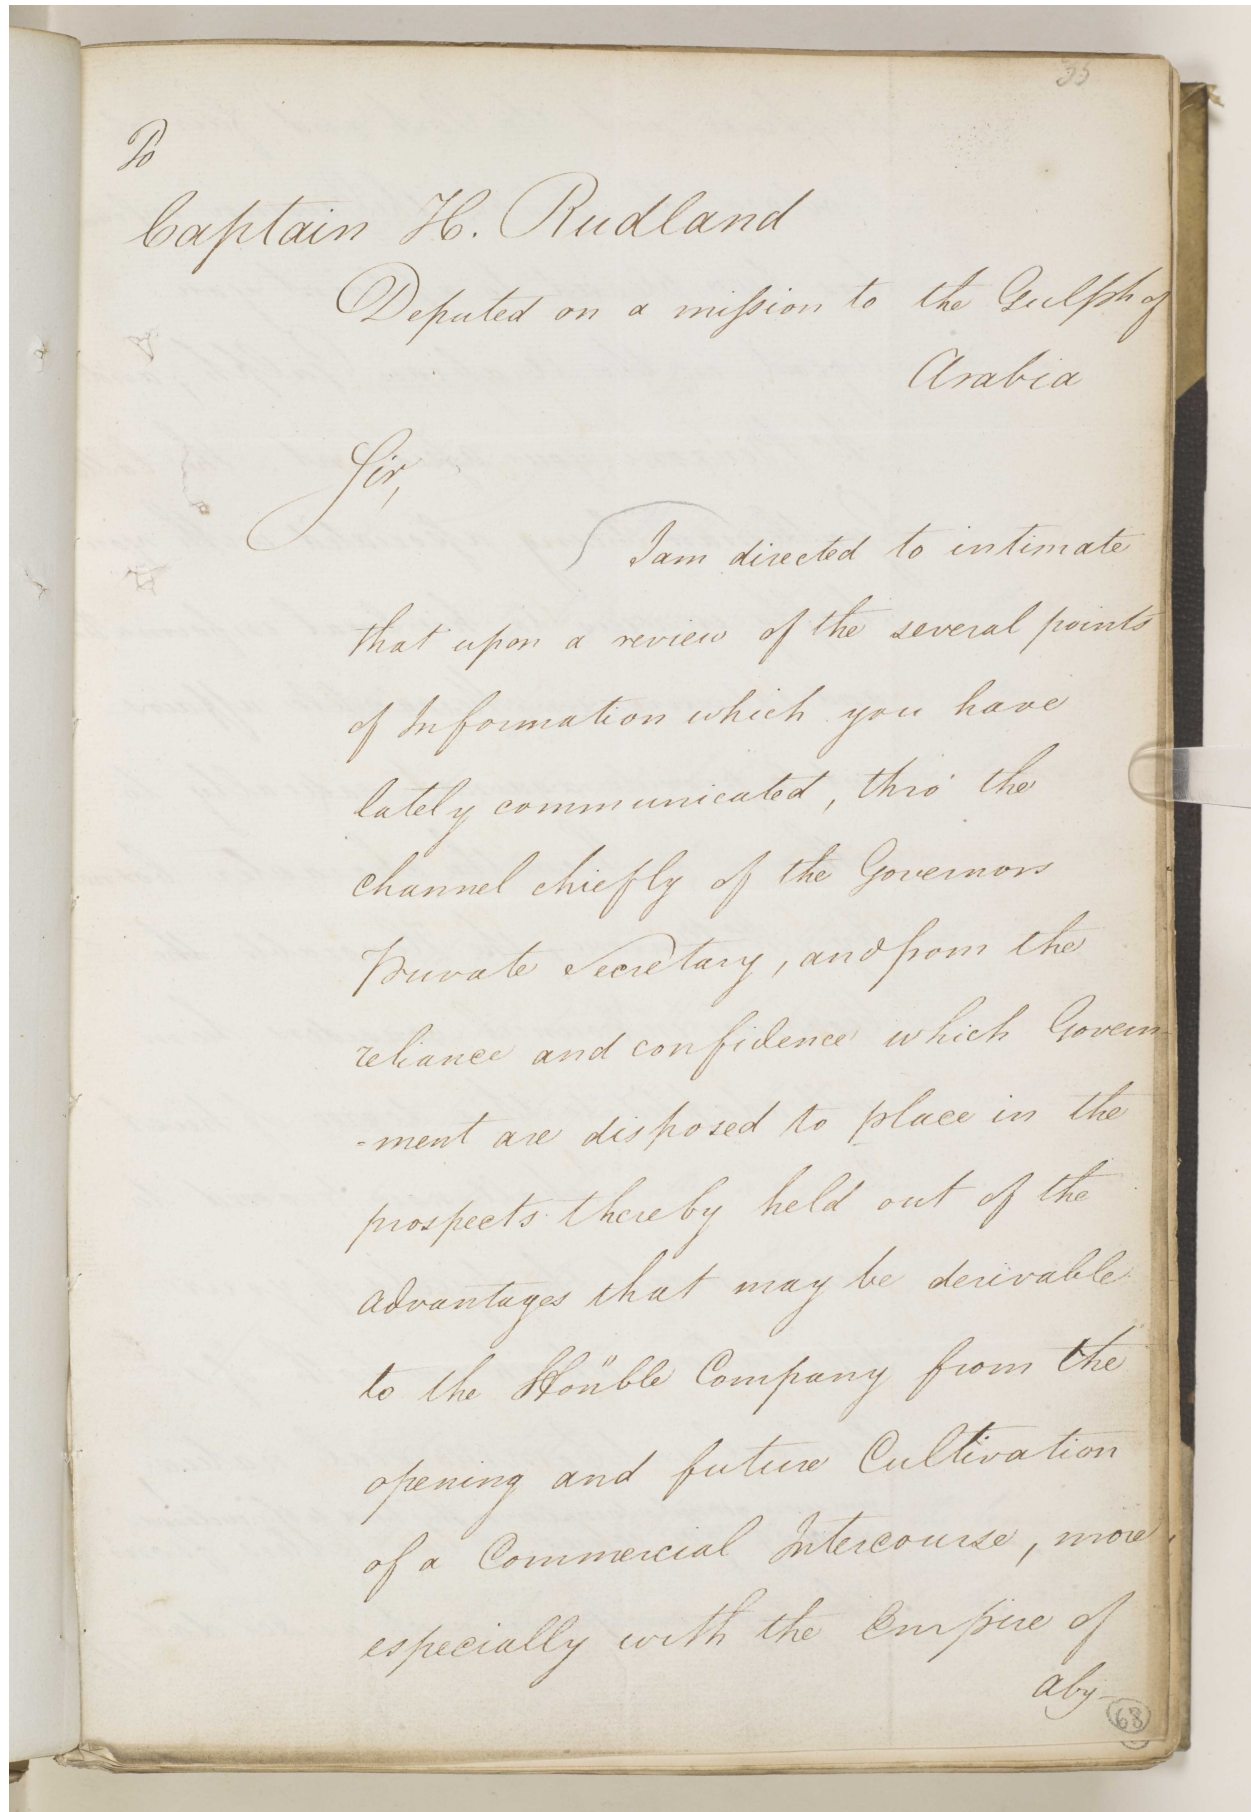 35
To
Captain H. Rudland
Deputed on a mission to the Gulph of
Arabia
Sir,
I am directed to intimate
that upon a review of the several points
of Information which you have
lately communicated, thro' the
channel chiefly of the Governors
Private Secretary, and from the
reliance and confidence which Govern-
-ment are disposed to place in the
prospects thereby held out of the
advantages that may be derivable
to the Hon'ble Company from the
opening and future Cultivation
of a Commercial Intercourse, more
especially with the Empire of
Aby-
68